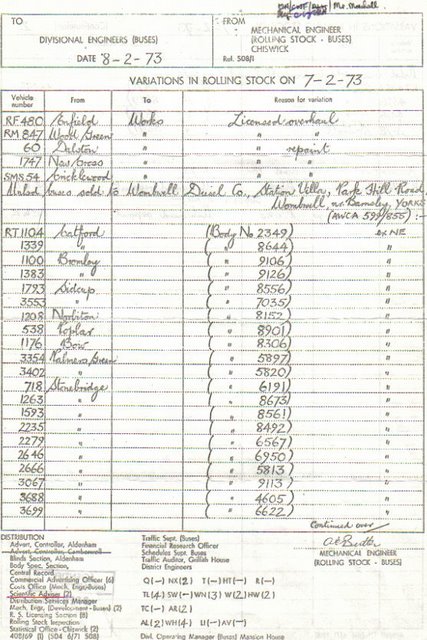 Mr. Marshall
TO
DIVISIONAL ENGINEERS (BUSES)
DATE 8-2-73
FROM
MECHANICAL ENGINEER
(ROLLING STOCK - BUSES)
CHISWICK
Ref. 508/1
VARIATIONS IN ROLLING STOCK ON 7-2-73
Vehicle number From To Reason for variation
RF 480 Enfield Works Licensed overhaul
RM 847 Wood Green " " "
60 Dalston " " repaint
1747 New Cross " " "
SMS 54 Cricklewood " " "
buses sold to Wombwell Diesel Co., Station Villa, Park Hill Road,
Wombwell, nr. Barnsley, YORKS
(AWCA 599/855) :-
RT 1104 Catford (Body No 2349) ex NE
1339 " ( " 8644) "
1100 Bromley ( " 9106) "
1383 " ( " 9126) "
1793 Sidcup ( " 8556) "
3553 " ( " 7035) "
1208 Norbiton ( " 8152) "
538 Poplar ( " 8901) "
1176 Bow ( " 8306) "
3354 Palmers Green ( " 5897) "
3402 " ( " 5820) "
718 Stonebridge ( " 6191) "
1263 " ( " 8673) "
1593 " ( " 8561) "
2235 " ( " 8492) "
2279 " ( " 6567) "
2646 " ( " 6950) "
2666 " ( " 5813) "
3067 " ( " 9113) "
3688 " ( " 4605) "
3699 " ( " 6622) "
Continued over
MECHANICAL ENGINEER
(ROLLING STOCK - BUSES)
DISTRIBUTION
Advert. Controller, Aldenham
Advert. Controller, Camberwell
Blinds Section, Aldenham
Body Spec. Section,
Central Record
Commercial Advertising Officer (6)
Costs Office (Mech. Engr-Buses)
Scientific Adviser (2)
Distribution Services Manager
Mech. Engr. (Development - Buses) (2)
R. S. Licensing Section (8)
Rolling Stock Inspection
Statistical Office - Chiswick (2)
408/69 (1) (504 6/71 508)
Traffic Supt. (Buses)
Financial Research Officer
Schedules Supt. Buses
Traffic Auditor, Griffith House
District Engineers
Q(-) NX(2) T(-) HT(-) R(-)
TL(4) SW(-) WN(3) W(2) HW(2)
TC(-) AR(2)
AL(2) WH(4) U(-) AV(-)
Divl. Operating Manager (Buses) Mansion House